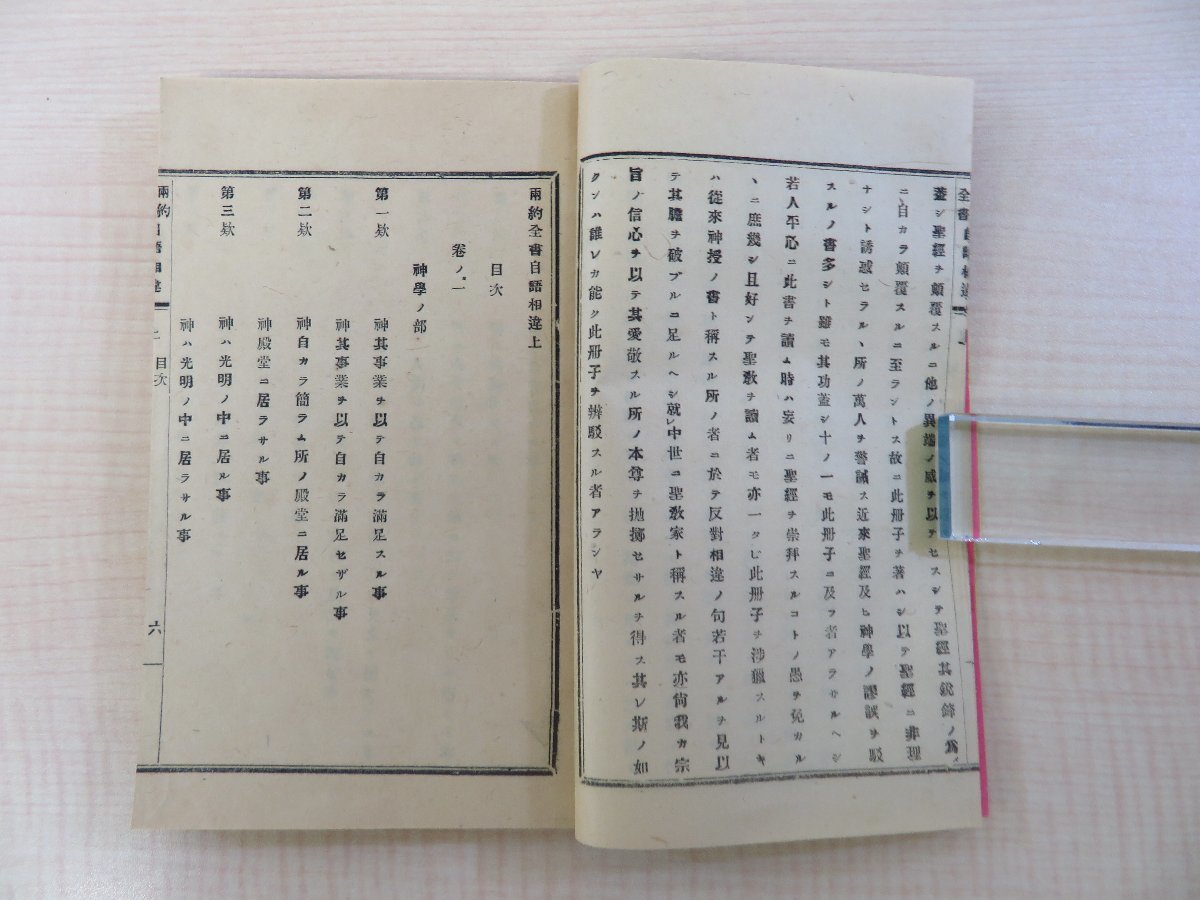 蓋シ聖經ヲ顛覆スルニ他ノ異端ノ威ヲ以テセスシテ聖經其銳鋒ノ爲メ
ニ自カラ顛覆スルニ至ラントス故ニ此册子ヲ著ハシ以テ聖經ニ非理
ナシト誘惑セラルヽ所ノ萬人ヲ警誡ス近來聖經及ヒ神學ノ謬誤ヲ駁
スルノ書多シト雖モ其功蓋シ十ノ一モ此册子ニ及フ者アラサルヘシ
若人平心ニ此書ヲ讀ム時ハ妄リニ聖經ヲ崇拜スルコトノ愚ヲ免カル
ヽニ庶幾シ且好ンテ聖敎ヲ讀ム者モ亦一タヒ此册子ヲ涉獵スルトキ
ハ從來神授ノ書ト稱スル所ノ者ニ於テ反對相違ノ句若干アルヲ見以
テ其膽ヲ破ブルニ足ルヘシ就レ中世ニ聖敎家ト稱スル者モ亦尙我カ宗
旨ノ信心ヲ以テ其愛敬スル所ノ本尊ヲ拋擲セサルヲ得ス其レ斯ノ如
クンハ誰レカ能ク此册子ヲ辨駁スル者アランヤ
兩約全書自語相違上
目次
卷ノ一
神學ノ部
第一欵 神其事業ヲ以テ自カラ滿足スル事
神其事業ヲ以テ自カラ滿足セザル事
第二欵 神自カラ簡ラム所ノ殿堂ニ居ル事
神殿堂ニ居ラサル事
第三欵 神ハ光明ノ中ニ居ル事
神ハ光明ノ中ニ居ラサル事
目次 六